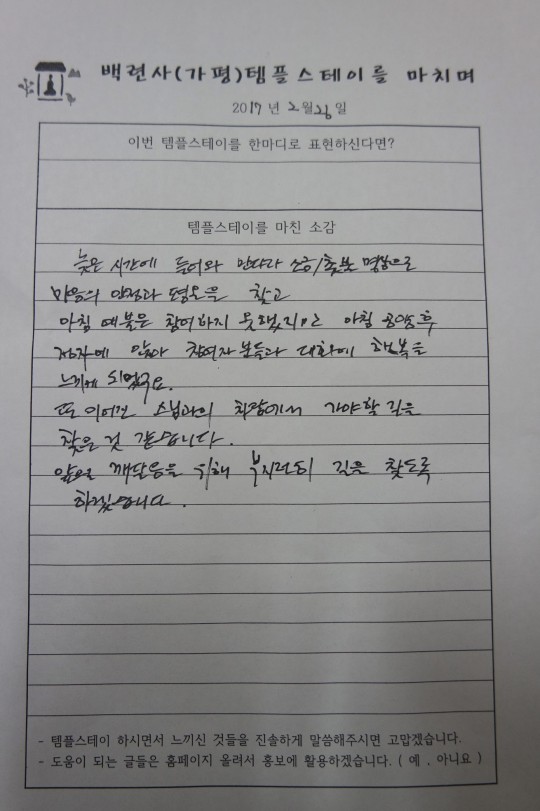 백련사(가평)템플스테이를 마치며
2017 년 2월 26 일
이번 템플스테이를 한마디로 표현하신다면?
템플스테이를 마친 소감
늦은 시간에 들어와 만다라 소금/촛불 명상으로
마음의 안정과 평온을 찾고
아침 예불은 참여하지 못했지만 아침 공양 후
정자에 앉아 참여자 분들과 대화에 행복을
느끼게 되었구요.
또 이어진 스님과의 차담에서 가야할 길을
찾은 것 같습니다.
앞으로 깨달음을 위해 부지런히 길을 찾도록
하겠습니다.
- 템플스테이 하시면서 느끼신 것들을 진솔하게 말씀해주시면 고맙겠습니다.
- 도움이 되는 글들은 홈페이지 올려서 홍보에 활용하겠습니다. ( 예 , 아니요 )